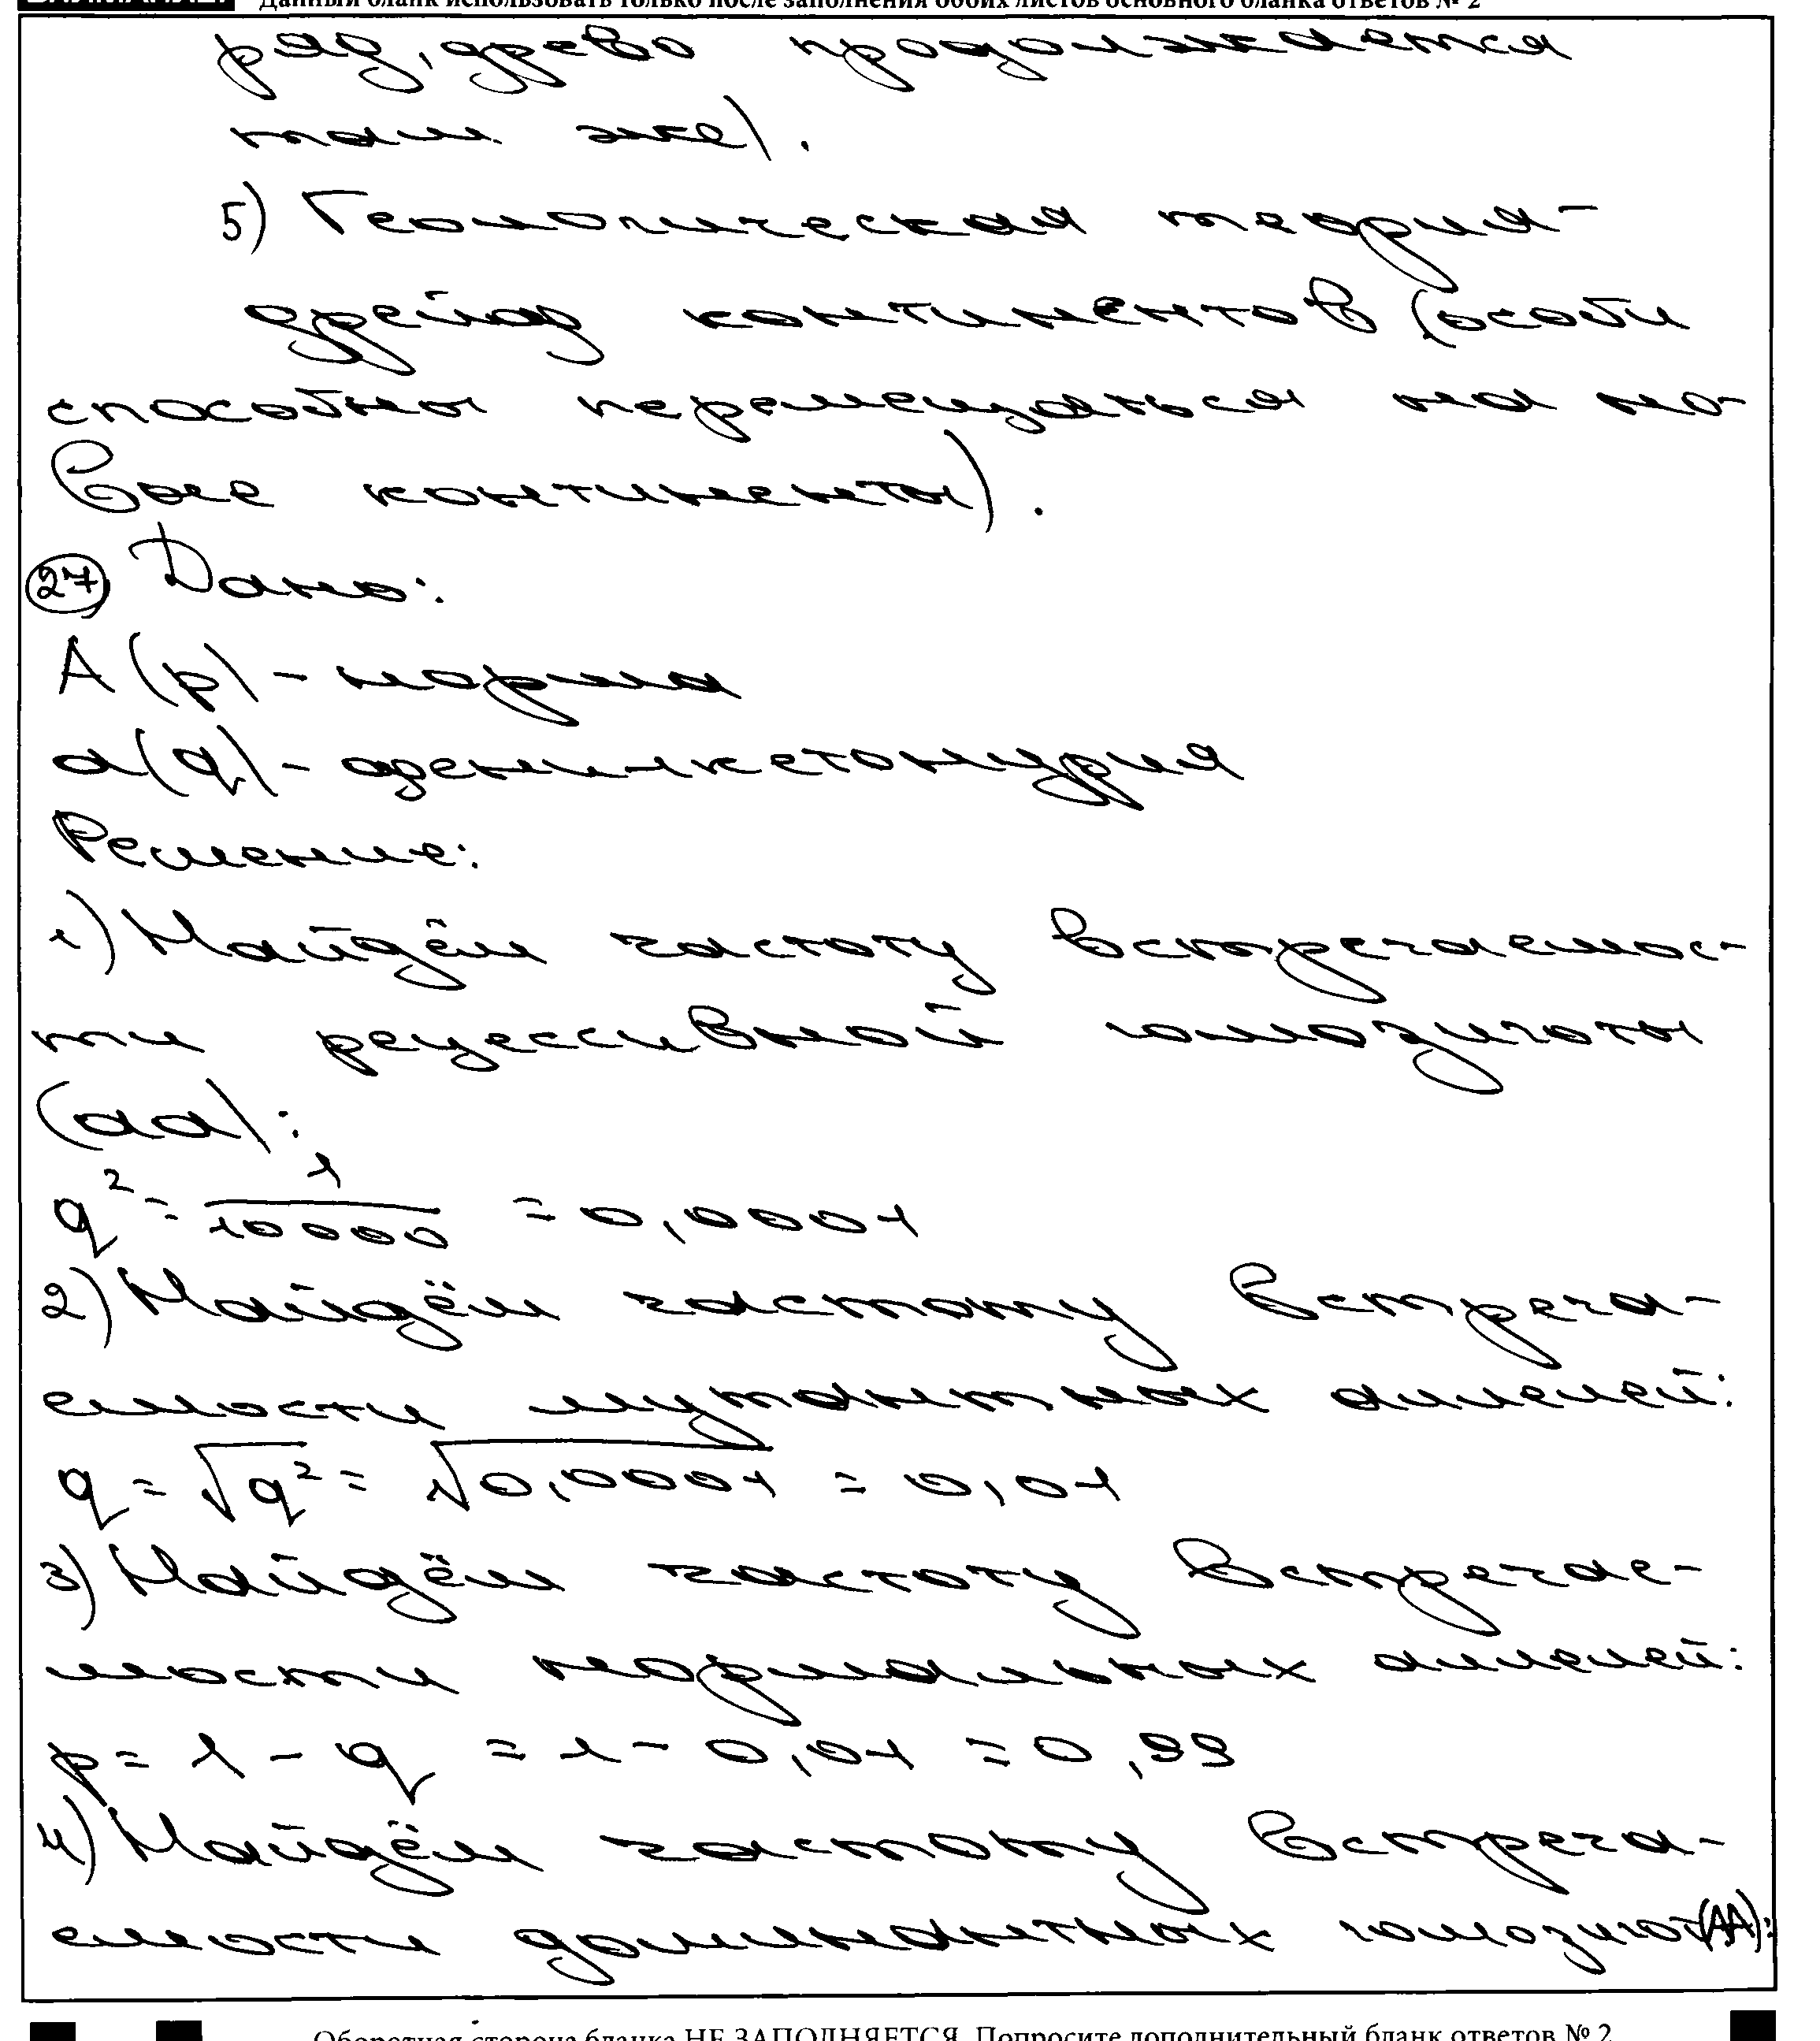 Данный бланк использовать только после заполнения обоих листов основного бланка ответов № 2
ряд, древо продолжается
там же).
5) Геологическая теория-
дрейф континентов (особи
способны перемещаться на но-
вые континенты).
27 Дано:
A (p) - норма
a (q) - фенилкетонурия
Решение:
1) Найдём частоту встречаемос-
ти рецессивной гомозиготы
(aa):
q² = 1/10000 = 0,0001
2) Найдём частоту встреча-
емости мутантных аллелей:
q = √q² = √0,0001 = 0,01
3) Найдём частоту встречае-
мости нормальных аллелей:
p = 1 - q = 1 - 0,01 = 0,99
4) Найдём частоту встреча-
емости доминантных гомозигот (AA):
Оборотная сторона бланка НЕ ЗАПОЛНЯЕТСЯ. Попросите дополнительный бланк ответов № 2